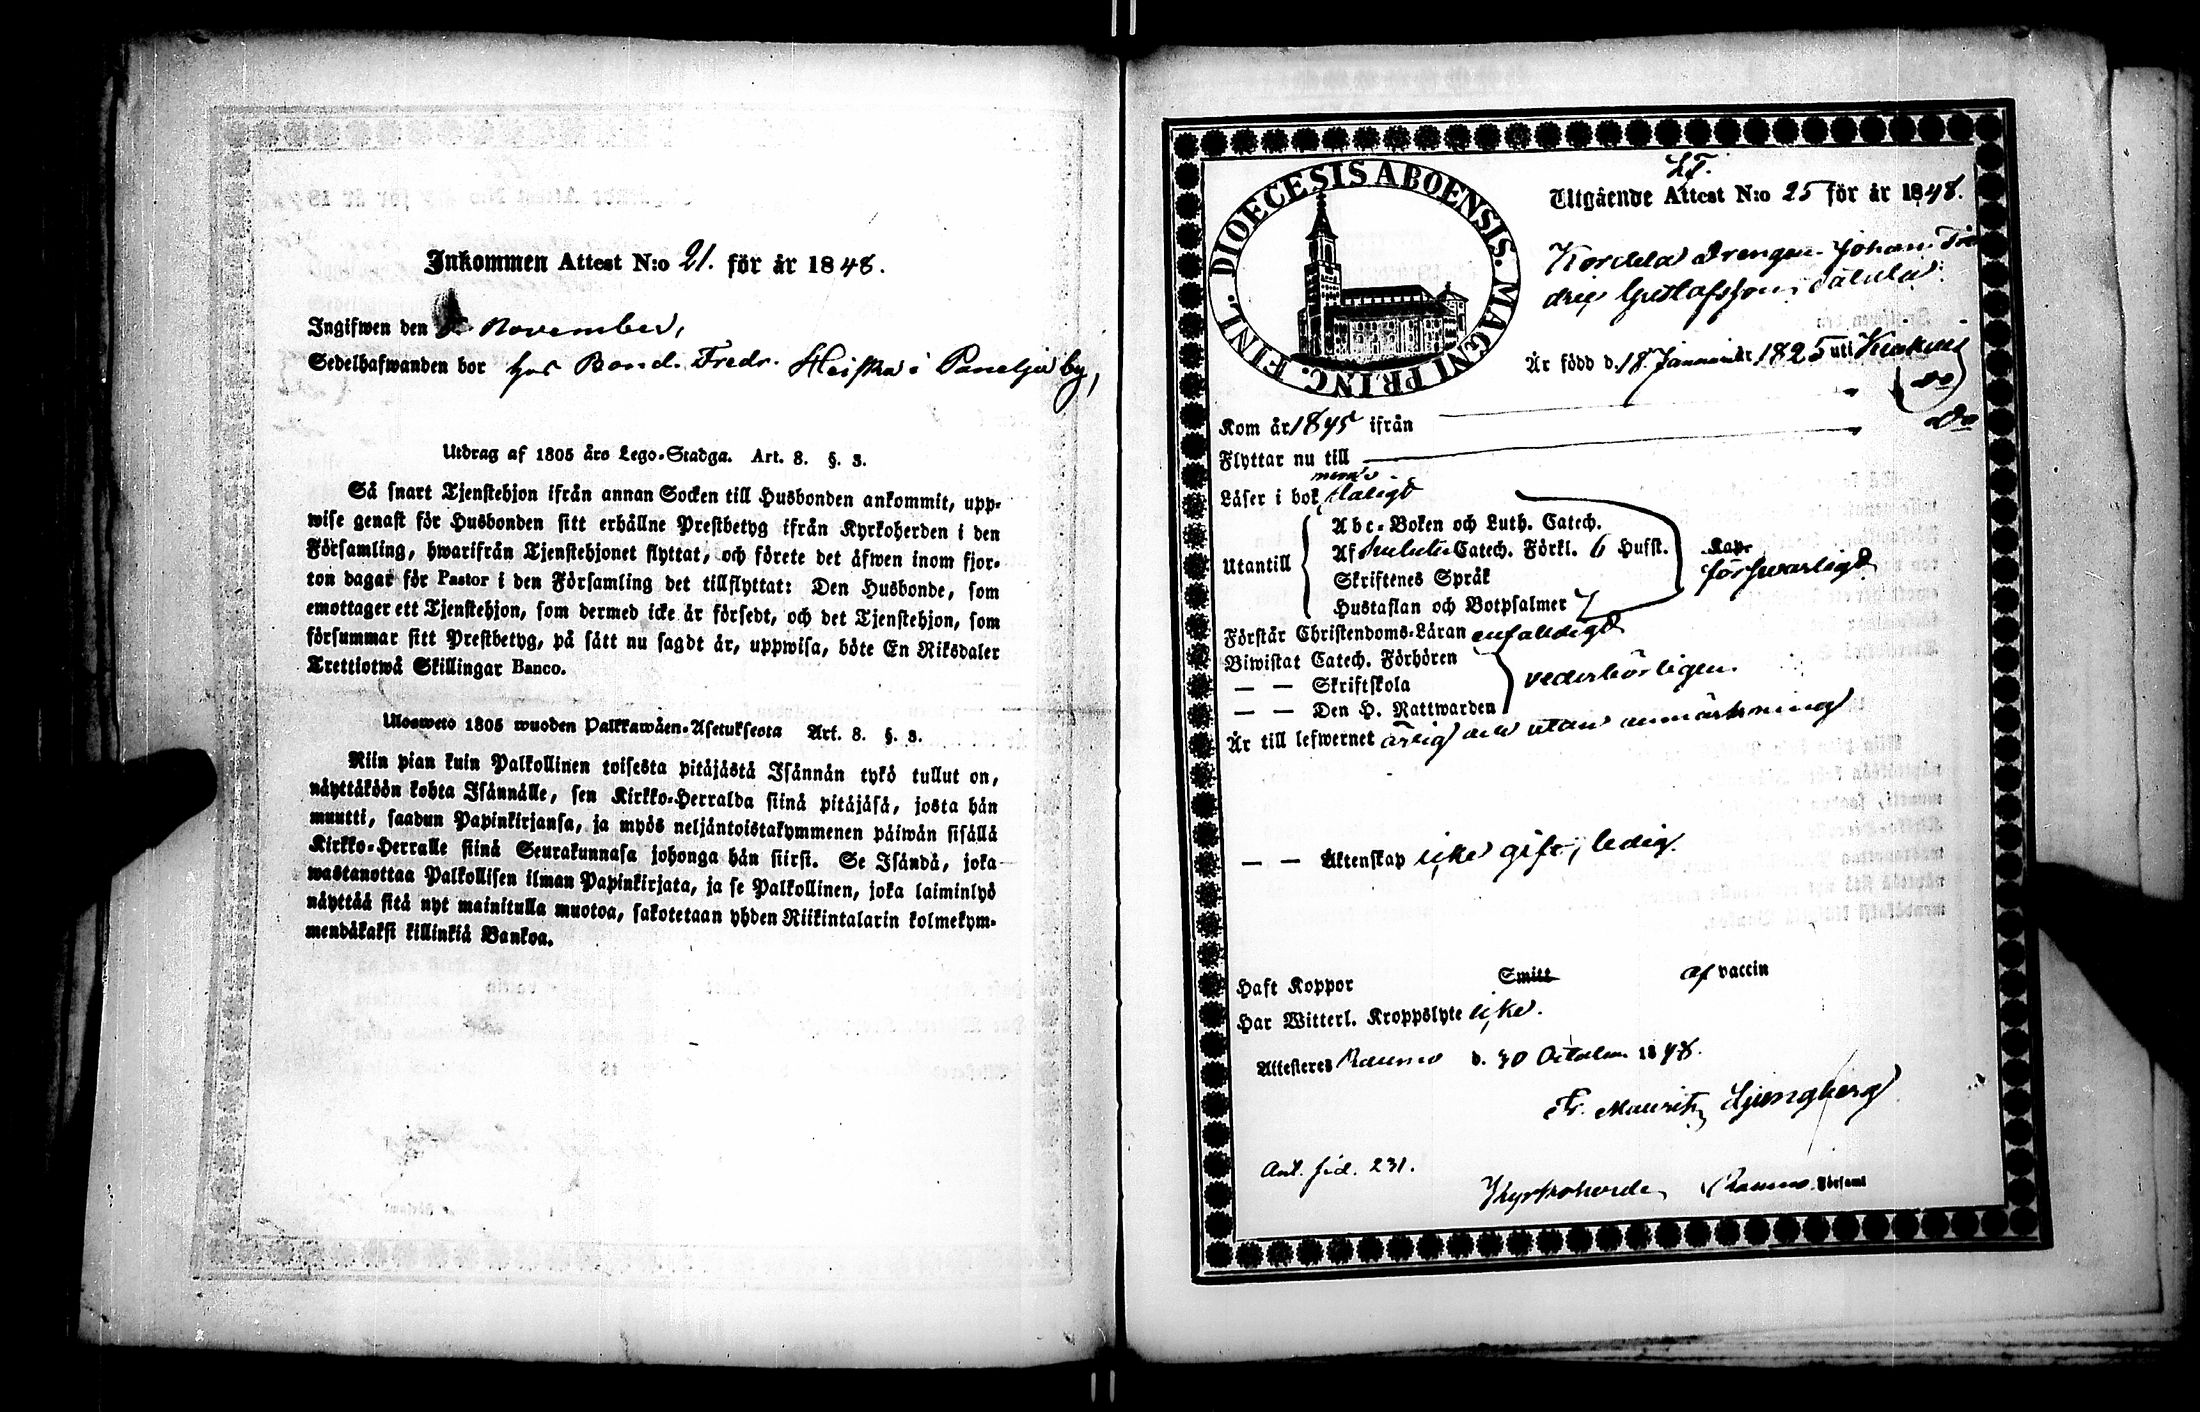 Inkommen Attest N:o 21. för år 1848.
Ingifwen den November,
Sedelhafwanden bor hos Bond. Fredr. Heiska i Panelja by,
Utdrag af 1805 års Lego-Stadga. Art. 8. §. 3.
Så snart Tjenstehjon ifrån annan Socken till Husbonden ankommit, upp-
wise genast för Husbonden sitt erhållne Prestbetyg ifrån Kyrkoherden i den
Församling, hwarifrån Tjenstehjonet flyttat, och förete det äfwen inom fjor-
ton dagar för Pastor i den Församling det tillflyttat: Den Husbonde, som
emottager ett Tjenstehjon, som dermed icke är försedt, och det Tjenstehjon, som
försummar sitt Prestbetyg, på sätt nu sagdt är, uppwisa, böte En Riksdaler
Trettiotwå Skillingar Banco.
Ulosweto 1805 wuoden Palkkawäen-Asetuksesta Art. 8. §. 3.
Niin pian kuin Palkollinen toisesta pitäjästä Isännän tykö tullut on,
näyttäköön kohta Isännälle, sen Kirkko-Herralda siinä pitäjäsä, josta hän
muutti, saadun Papinkirjansa, ja myös neljäntoistakymmenen päiwän sisällä
Kirkko-Herralle siinä Seurakunnasa johonga hän siirsi. Se Isändä, joka
wastanottaa Palkollisen ilman Papinkirjata, ja se Palkollinen, joka laiminlyö
näyttää sitä nyt mainitulla muotoa, sakotetaan yhden Riikintalarin kolmekym-
mendäkaksi killinkiä Bankoa.
DIOECESIS ABOENSIS. MAGNI PRINC. FINL.
S.T.
Utgående Attest N:o 25 för år 1848.
Kordela Drengen Johan Fre
dric Gustafsson Sälilä
Är född d. 18 Januarii år 1825 uti
(Do)
Kom år 1845 ifrån Do
Flyttar nu till
Läser i bok
Utantill
Abc-Boken och Luth. Catech.
Af Catech. Förkl. 6 Hufst.
Skriftenes Språk
Hustaflan och Botpsalmer 7
försvarligt
Förstår Christendoms-Läran enfaldigt
Biwistat Catech. Förhören
— — Skriftskola
— — Den H. Nattwarden
vederbörligen.
Är till lefwernet ärlig och utan anmärkning
— — Äktenskap icke gift, ledig.
Haft Koppor Smitt af vaccin
Har Witterl. Kroppslyte icke.
Attesteras Raumo d. 30 October 1848.
Fr. Mauritz Ljungberg
Ant. fid. 231.
Kyrkoherde, Raumo Församl